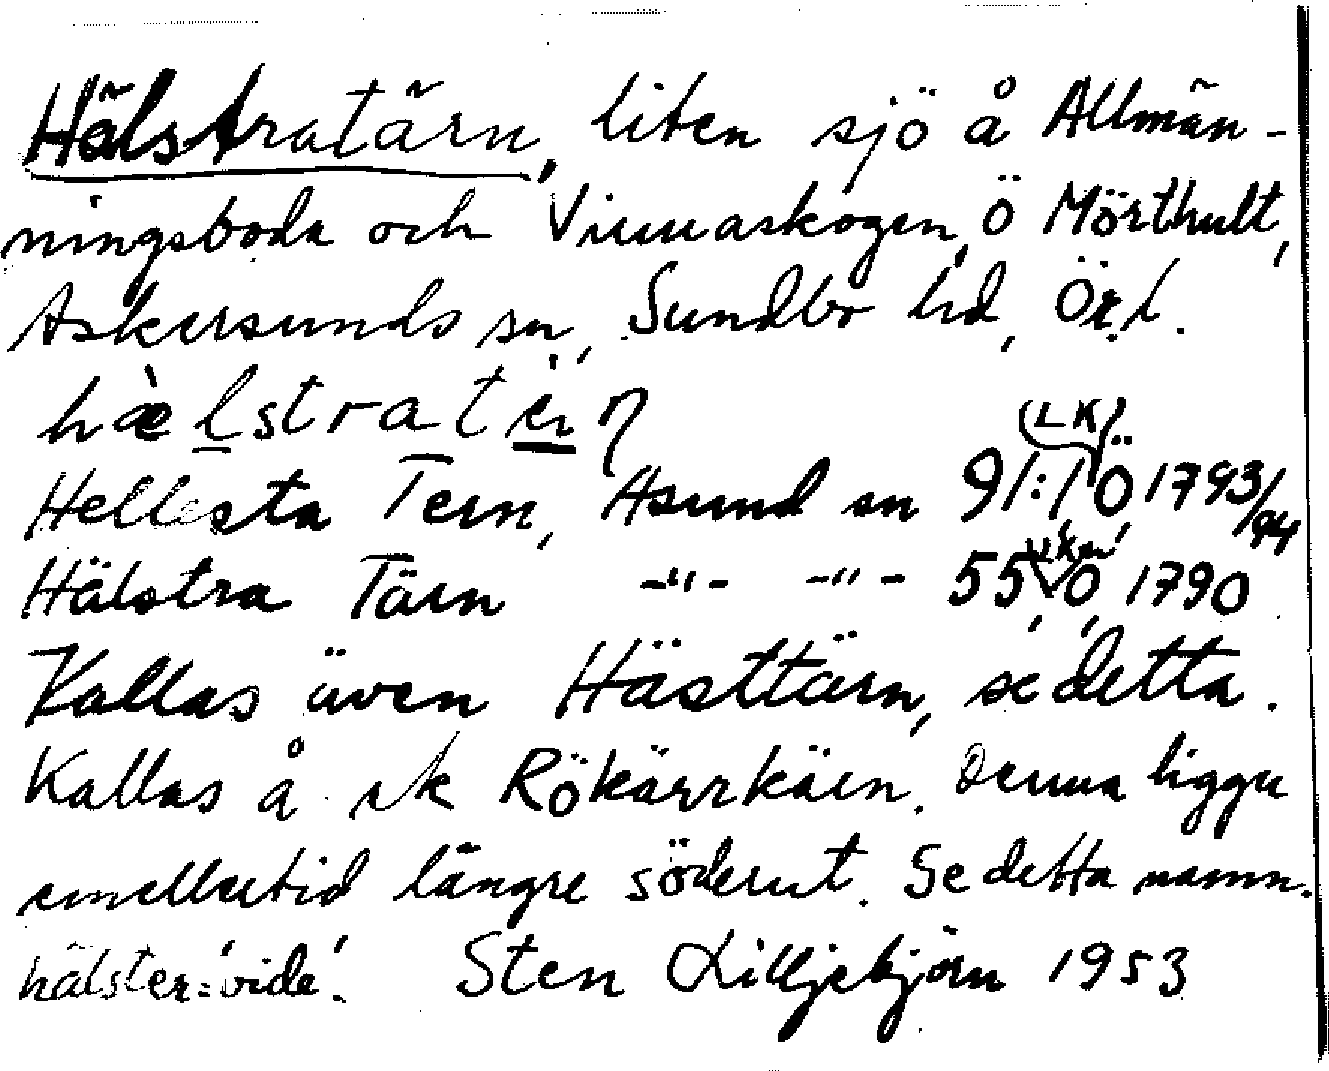 Hälstratärn, liten sjö å Allmän-
ningsboda och Vinnaskogen, Ö Mörthult,
Askersunds sn, Sundbo hd, Ör.l.
hæ̀lstratä̀rn
Hellesta Tern, Asund sn 91:1 Ö 1793/94
(LK)
Hälstra Tärn -"- -"- 55, Ö, 1790
Kallas även Hästtärn, se detta.
Kallas å sk Rökärrkärn. Denna ligger
emellertid längre söderut. Se detta namn.
hälster = 'vide'. Sten Lilljebjörn 1953